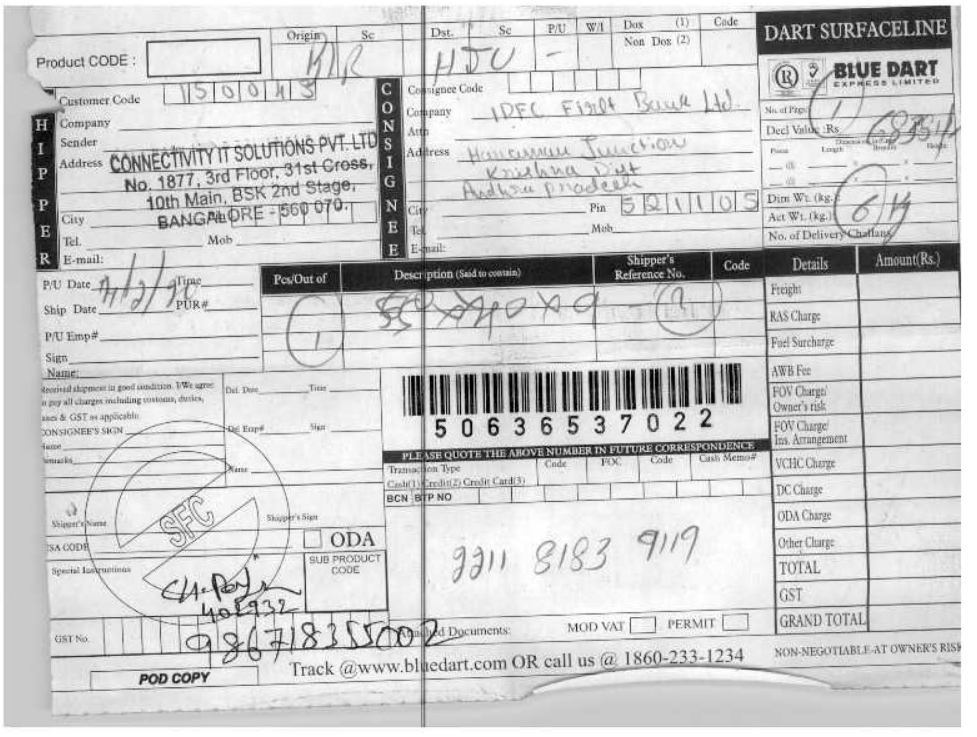 Origin Sc Dst. Sc P/U W/I Dox (1) Code
Non Dox (2)
DART SURFACELINE
Product CODE :
BLUE DART
EXPRESS LIMITED
Customer Code 150043
Consignee Code
Company
Company IDFC First Bank Ltd.
Sender
Attn
Address CONNECTIVITY IT SOLUTIONS PVT. LTD
No. 1877, 3rd Floor, 31st Cross,
10th Main, BSK 2nd Stage,
BANGALORE - 560 070.
Address Hanuman Junction
Krishna Dist
Andhra pradesh
City
City Pin 521105
Tel. Mob
Tel. Mob.
E-mail:
E-mail:
SHIPPER
CONSIGNEE
No. of Pages 1
Decl Value :Rs
Length Breadth Height
Dim Wt. (kg.)
Act Wt. (kg.) 6 kg
No. of Delivery Challans
P/U Date Time
Ship Date PUR#
P/U Emp#
Sign
Name:
Pcs/Out of Description (Said to contain) Shipper's Reference No. Code
1
Details Amount(Rs.)
Freight
RAS Charge
Fuel Surcharge
AWB Fee
FOV Charge/
Owner's risk
FOV Charge/
Ins. Arrangement
VCHC Charge
DC Charge
ODA Charge
Other Charge
TOTAL
GST
GRAND TOTAL
Received shipment in good condition. I/We agree
to pay all charges including customs, duties,
taxes & GST as applicable.
CONSIGNEE'S SIGN
Name
Remarks
Del. Date Time
Del Emp# Sign
Name
50636537022
PLEASE QUOTE THE ABOVE NUMBER IN FUTURE CORRESPONDENCE
Transaction Type Code FOC Code Cash Memo#
Cash(1) Credit(2) Credit Card(3)
BCN BTP NO
SFC
Shipper's Name Shipper's Sign
ISA CODE
ODA
Special Instructions
SUB PRODUCT
CODE
2211 8183 9119
402932
GST No.
986718355002
Attached Documents: MOD VAT PERMIT
POD COPY
Track @www.bluedart.com OR call us @ 1860-233-1234
NON-NEGOTIABLE-AT OWNER'S RISK